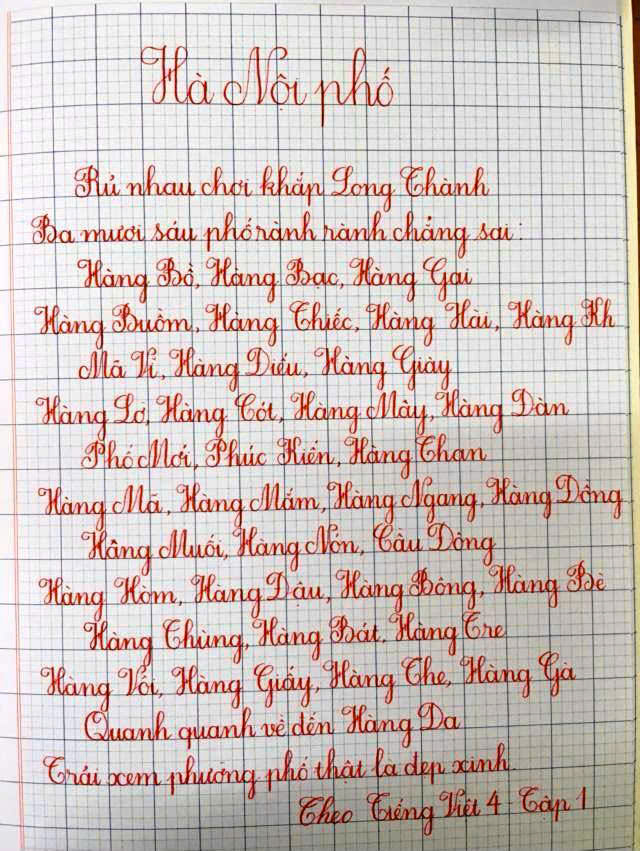 Hà Nội phố
Rủ nhau chơi khắp Long Thành
Ba mươi sáu phố rành rành chẳng sai:
Hàng Bồ, Hàng Bạc, Hàng Gai
Hàng Buồm, Hàng Thiếc, Hàng Hài, Hàng Kh
Mã Vĩ, Hàng Điếu, Hàng Giày
Hàng Lờ, Hàng Cót, Hàng Mây, Hàng Đàn
Phố Mới, Phúc Kiến, Hàng Than
Hàng Mã, Hàng Mắm, Hàng Ngang, Hàng Đồng
Hàng Muối, Hàng Nón, Cầu Đông
Hàng Hòm, Hàng Đậu, Hàng Bông, Hàng Bè
Hàng Thùng, Hàng Bát, Hàng Tre
Hàng Vôi, Hàng Giấy, Hàng The, Hàng Gà
Quanh quanh về đến Hàng Da
Trải xem phương phố thật là đẹp xinh.
Theo Tiếng Việt 4 - Tập 1